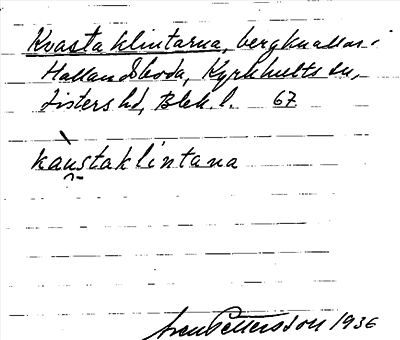 Kvastaklintarna, bergknallar i
Hallandsboda, Kyrkhults sn,
Listers hd, Blek. l. 67
kàu̯staklintana
Sven Pettersson 1936